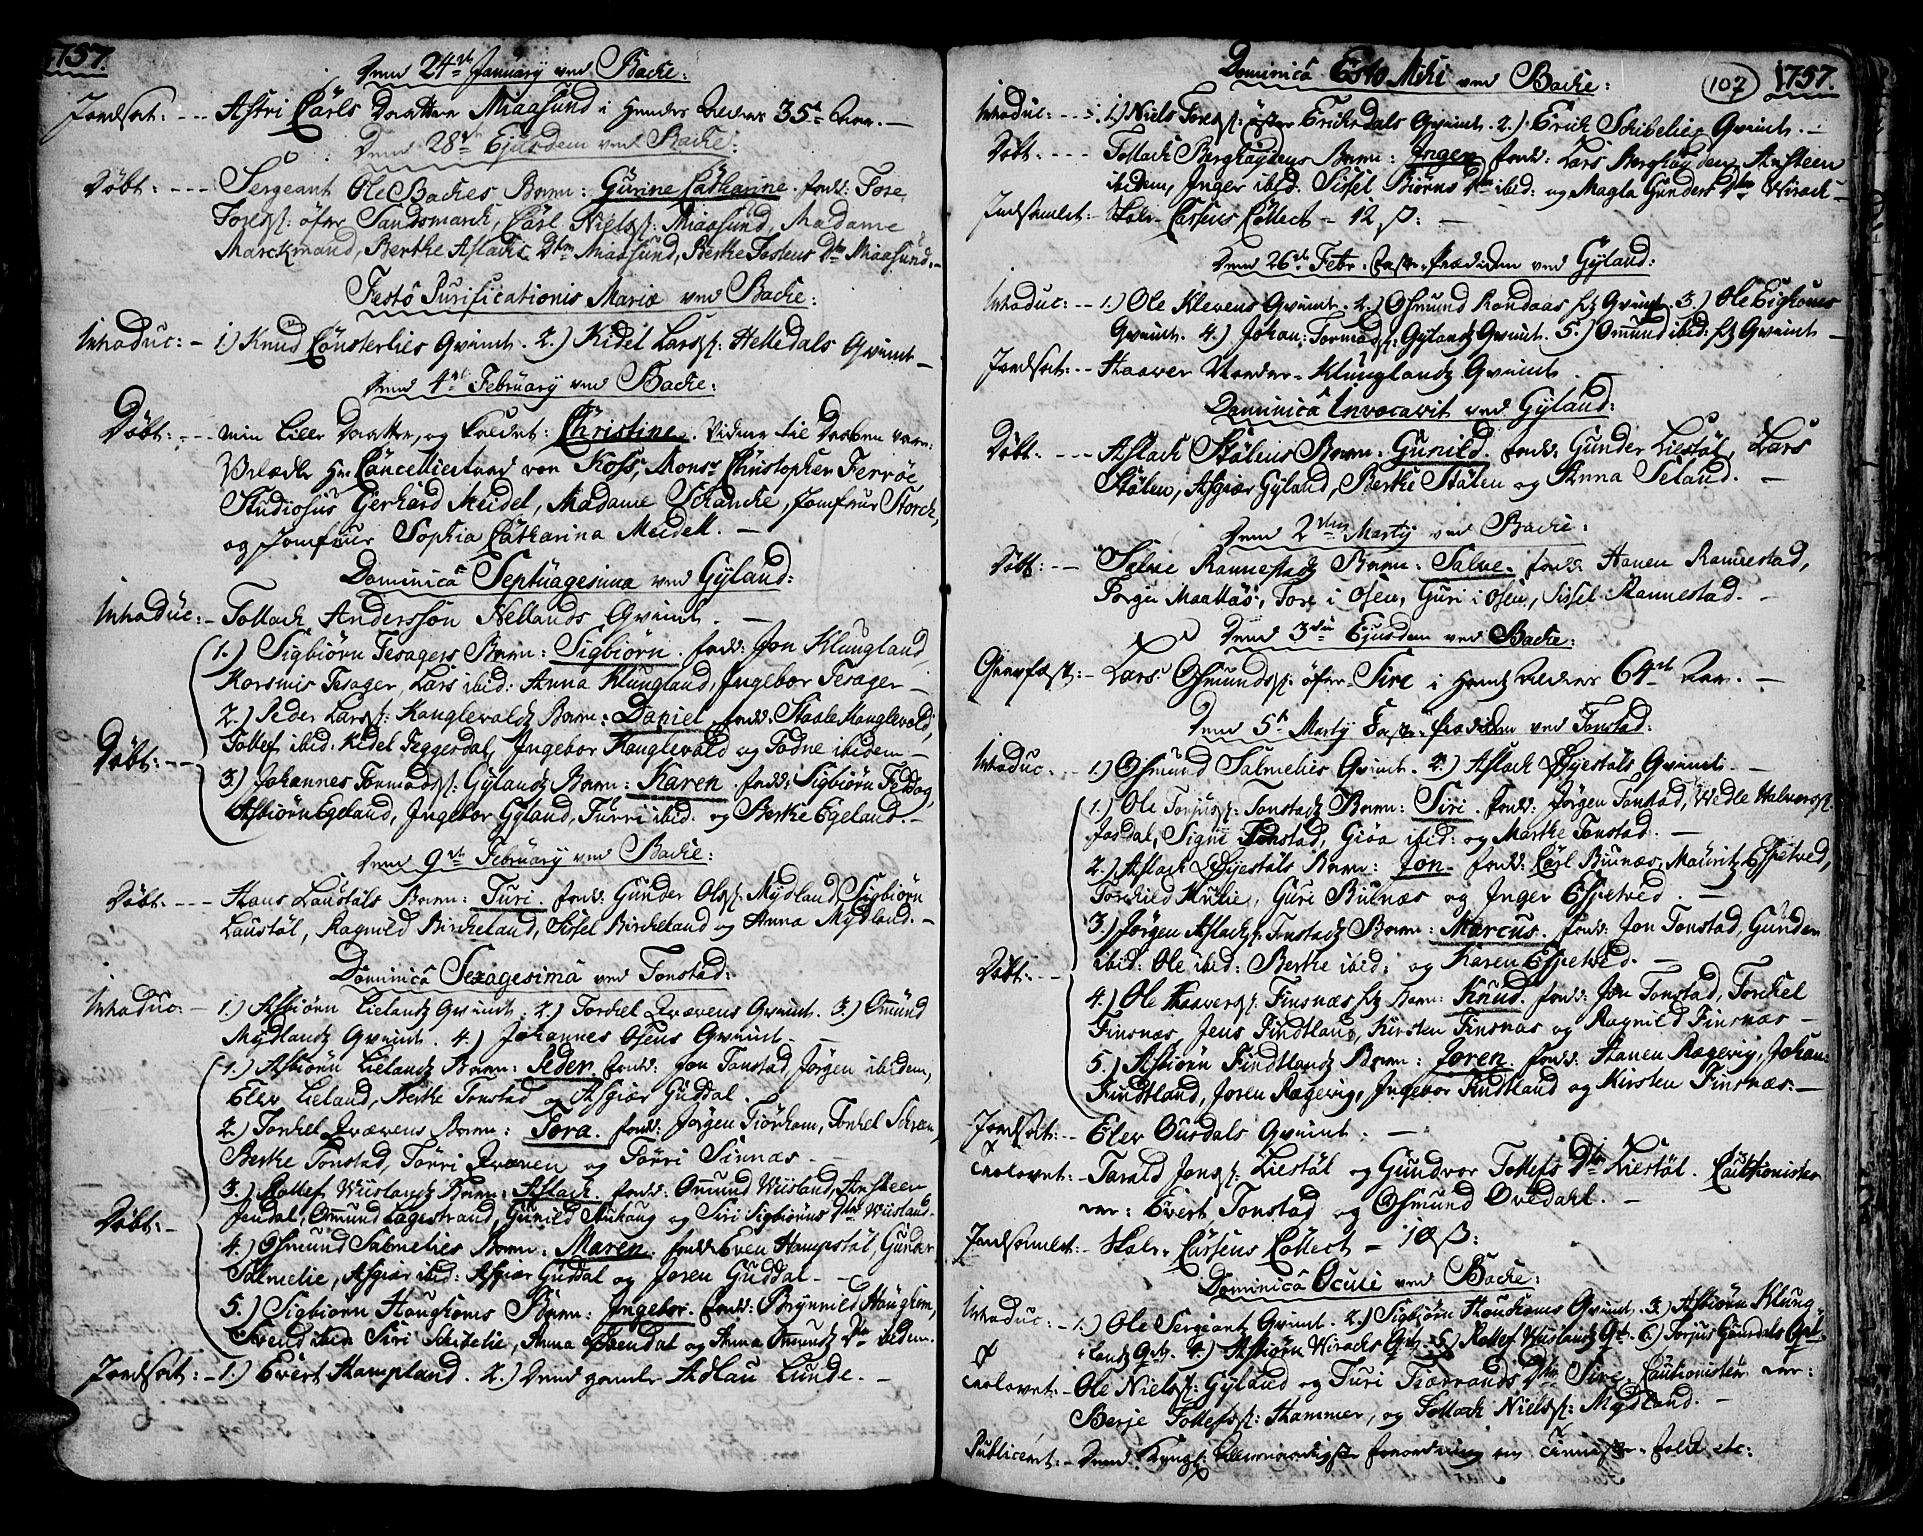 1757.
Dend 24de January ved Backe:
Jordfæst: --- Astri Carls Daatter Miaasund i hendes Alders 35te Aar. —
Dend 28de Ejusdem ved Backe:
Døbt: --- Sergeant Ole Backes Barn: Gurine Catharine. fadd: Tore
Tores: øfre Sandsmarck, Carl Niels: Miaasund, Madame
Marckmand, Berthe Aslachs Dtr Miaasund, Berthe Tostens Dtr Miaasund.
Festo Purificationis Mariæ ved Backe:
Introduc: - 1) Knud Consterlies Qvinde. 2.) Kidel Lars: Helledals Qvinde —
Dend 4de February ved Backe:
Døbt: --- min Lille Daatter, og kaldet: Christine. Vidner til Daaben vare:
Velædle Hr Cancellieraad von Koss, Monsr Christopher Ferröe,
Studiosus Gerhard Meidel, Madame Schancke, Jomfrue Storck,
og Jomfrue Sophia Catharina Meidell. —
Dominica Septuagesima ved Gyland:
Introduc: - Tollach Anderssøn Nellands Qvinde. —
1.) Sigbiørn Tesagers Barn: Sigbiørn. fadd: Jon Klungland,
Rasmus Tesager, Lars ibid: Anna Klungland, Ingebor Tesager —
2.) Peder Lars: Kauglevaldz Barn: Daniel. fadd: Staale Kauglevald,
Tollef ibid: Kidel Feggesdal, Ingebor Kauglevald og Todne ibidem —
Døbt: --
3.) Johannes Tormods: Gylandz Barn: Karen. fadd: Sigbiørn
Asbiørn Egeland, Ingebor Gyland, Turri ibid: og Berthe Egeland. —
Dend 9de February ved Backe:
Døbt: --- Hans Laustøls Barn: Turi. fadd: Gunder Ols: Mydland, Sigbiørn
Laustøl, Ragnild Birckeland, Sissel Birckeland og Anna Mydland. —
Dominica Sexagesima ved Tonstad:
Introduc: - 1.) Asbiørn Lielandz Qvinde. 2.) Torckel Qvævens Qvinde. 3.) Omund
Mydlandz Qvinde. 4.) Johannes Osens Qvinde. —
1.) Asbiørn Lielandz Barn: Peder. fadd: Jon Tonstad, Jørgen ibidem,
Elev Lieland, Berthe Tonstad og Asgiær Guddal.
2.) Torckel Qvævens Barn: Tora. fadd: Jørgen Tiørhom, Torckel
Berthe Tonstad, Torri Qvæven og Torri Sinnæs. —
3.) Rollef Wiislandz Barn: Aslach. fadd: Omund Wiisland, Ansteen
Josdal, Omund Lagestrand, Gunild Haukaug og Siri Sigbiørns Dtr Wiisland.
Døbt: -
4.) Osmund Salmelies Barn: Maren. fadd: Even Hampstøl, Gunder
Salmelie, Asgiær ibid: Asgiær Guddal og Joren Guddal. —
5.) Sigbiørn Haughoms Barn: Ingebor. fadd: Brynnild Haughom,
Svend ibid: Siri Schibelie, Anna og Anna Omundz Dtr ibidem.
Jordfæst: - 1.) Evert Hampland. 2.) Dend gamle Adlau Lunde. —

107 1757.
Dominica Esto Mihi ved Backe:
Introduc: -- 1) Niels Tores: øfre Ericksdals Qvinde. 2.) Erick Schibelies Qvinde. —
Døbt: --- Tollach Berghøydens Barn: Inger. fadd: Lars Berghøyden, Ansteen
ibidem, Inger ibid: Sissel Biørns Dtr ibid: og Magla Gunders Dtr Wirack —
Indsamlet: - Skole-Cassens Collect — 12 ß: —
Dend 26de Febr. Faste-Prædiken ved Gyland:
Introduc: -- 1.) Ole Klevens Qvinde. 2.) Osmund Rondaas Qvinde. 3.) Ole Eighoms
Qvinde. 4.) Johan: Tormods: Gylandz Qvinde. 5.) Omund ibid: Qvinde —
Jordfæst: -- Haaver Klunglandz Qvinde —
Dominica Invocavit ved Gyland:
Døbt: --- Aslach Stølens Barn: Gunild. fadd: Gunder Liestøl, Lars
Stølen, Asgiær Gyland, Berthe Stølen og Anna Seland. —
Dend 2den Marty ved Backe:
Døbt: -- Salve Rannestadz Barn: Salve. fadd: Hanen Rannestad,
Jørgen Maattas, Tore i Osen, Guri i Osen, Sissel Rannestad. —
Dend 3die Ejusdem ved Backe:
Gravfæst: - Lars Osmunds: øfre Sire i hans Alders 64de Aar. —
Dend 5te Marty Faste-Prædiken ved Tonstad:
Introduc. -- 1.) Osmund Salmelies Qvinde. 2.) Aslach Øyestøls Qvinde —
1.) Ole Torjus: Tonstadz Barn: Siri. fadd: Jørgen Tonstad, Wedle Halvors:
Josdal, Signe Tonstad, Gioa ibid: og Marthe Tonstad. —
2.) Aslach Øyestøls Barn: Jon. fadd: Carl Buinæs, Mauritz Espetved,
Torckild Mulie, Guri Buinæs og Inger Espetved —
3.) Jørgen Aslachs: Tonstadz Barn: Marcus. fadd: Jon Tonstad, Gunder
ibid: Ole ibid: Berthe ibid: og Karen Espetved. —
Døbt: --
4.) Ole Haavers: Finsnæs Barn: Knud. fadd: Jon Tonstad, Torckel
Finsnæs, Jens Findtland, Kirsten Finsnæs og Ragnild Finsnæs —
5.) Asbiørn Findtlandz Barn: Joren. fadd: Hanen Rægevig, Johan:
Findtland, Joren Rægevig, Ingebor Findtland og Kirsten Finsnæs. —
Jordfæst: - Elev Ousdals Qvinde. —
Trolovet: - Tarald Jons: Liestøl og Gundvor Tollefs Dtr Liestøl. Cautionister
var: Evert Tonstad og Osmund Ovedahl. —
Indsamlet: - Skole-Cassens Collect — 10 ß:
Dominica Oculi ved Backe:
Introduc: - 1.) Ole Sergeantz Qvinde. 2.) Sigbiørn Haughoms Qvinde. 3.) Asbiørn Klung
landz Qv. 4.) Asbiørn Wirachs Qv. 5.) Rollef Wiislandz Qv. 6.) Torjus Gousdals Qv.
Trolovet: - Ole Niels: Gyland og Turi Tværrands Dtr Sire. Cautionister var:
Berje Tollefs: Hammer, og Tollach Niels: Mydland. —
Publiceret: - Dend Kongl: Allernaadigste forordning om folck etc: